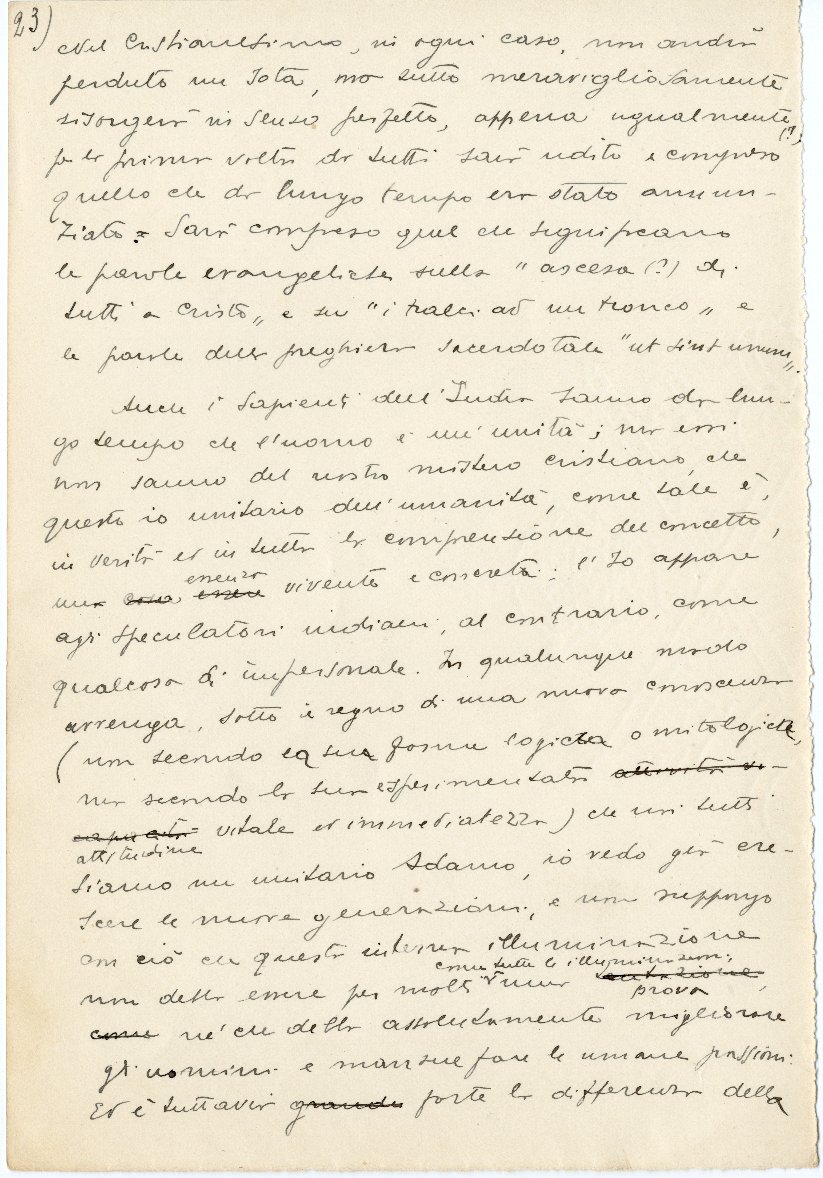 23)
Nel Cristianesimo, in ogni caso, non andrà
perduto un Iota, ma tutto meravigliosamente
risorgerà in senso perfetto, appena ugualmente (?)
per la prima volta da tutti sarà udito e compreso
quello che da lungo tempo era stato annun-
ziato. Sarà compreso quel che significano
le parole evangeliche sulla "ascesa (?) di
tutti a Cristo" e su "i tralci ad un tronco" e
le parole della preghiera sacerdotale "ut sint unum".
Anche i Sapienti dell'India sanno da lun-
go tempo che l'uomo è un'unità; ma essi
non sanno del nostro mistero cristiano, che
questo io unitario dell'umanità, come tale è,
in verità ed in tutta la comprensione del concetto,
essenza
una cosa essere vivente e concreta: l'Io appare
agli speculatori indiani, al contrario, come
qualcosa di impersonale. In qualunque modo
avvenga, sotto il regno di una nuova conoscenza
(non secondo la sua forma logica o mitologica,
ma secondo la sua esperimentata attività vi-
capacità vitale ed immediatezza) che noi tutti
attitudine
siamo un unitario Adamo, io vedo già cre-
scere le nuove generazioni, e non suppongo
con ciò che questa interna illuminazione
come tutte le illuminazioni,
non debba essere per molti una tentazione,
prova
come né che debba assolutamente migliorare
gli uomini e mansuefare le umane passioni.
Ed è tuttavia grande forte la differenza della